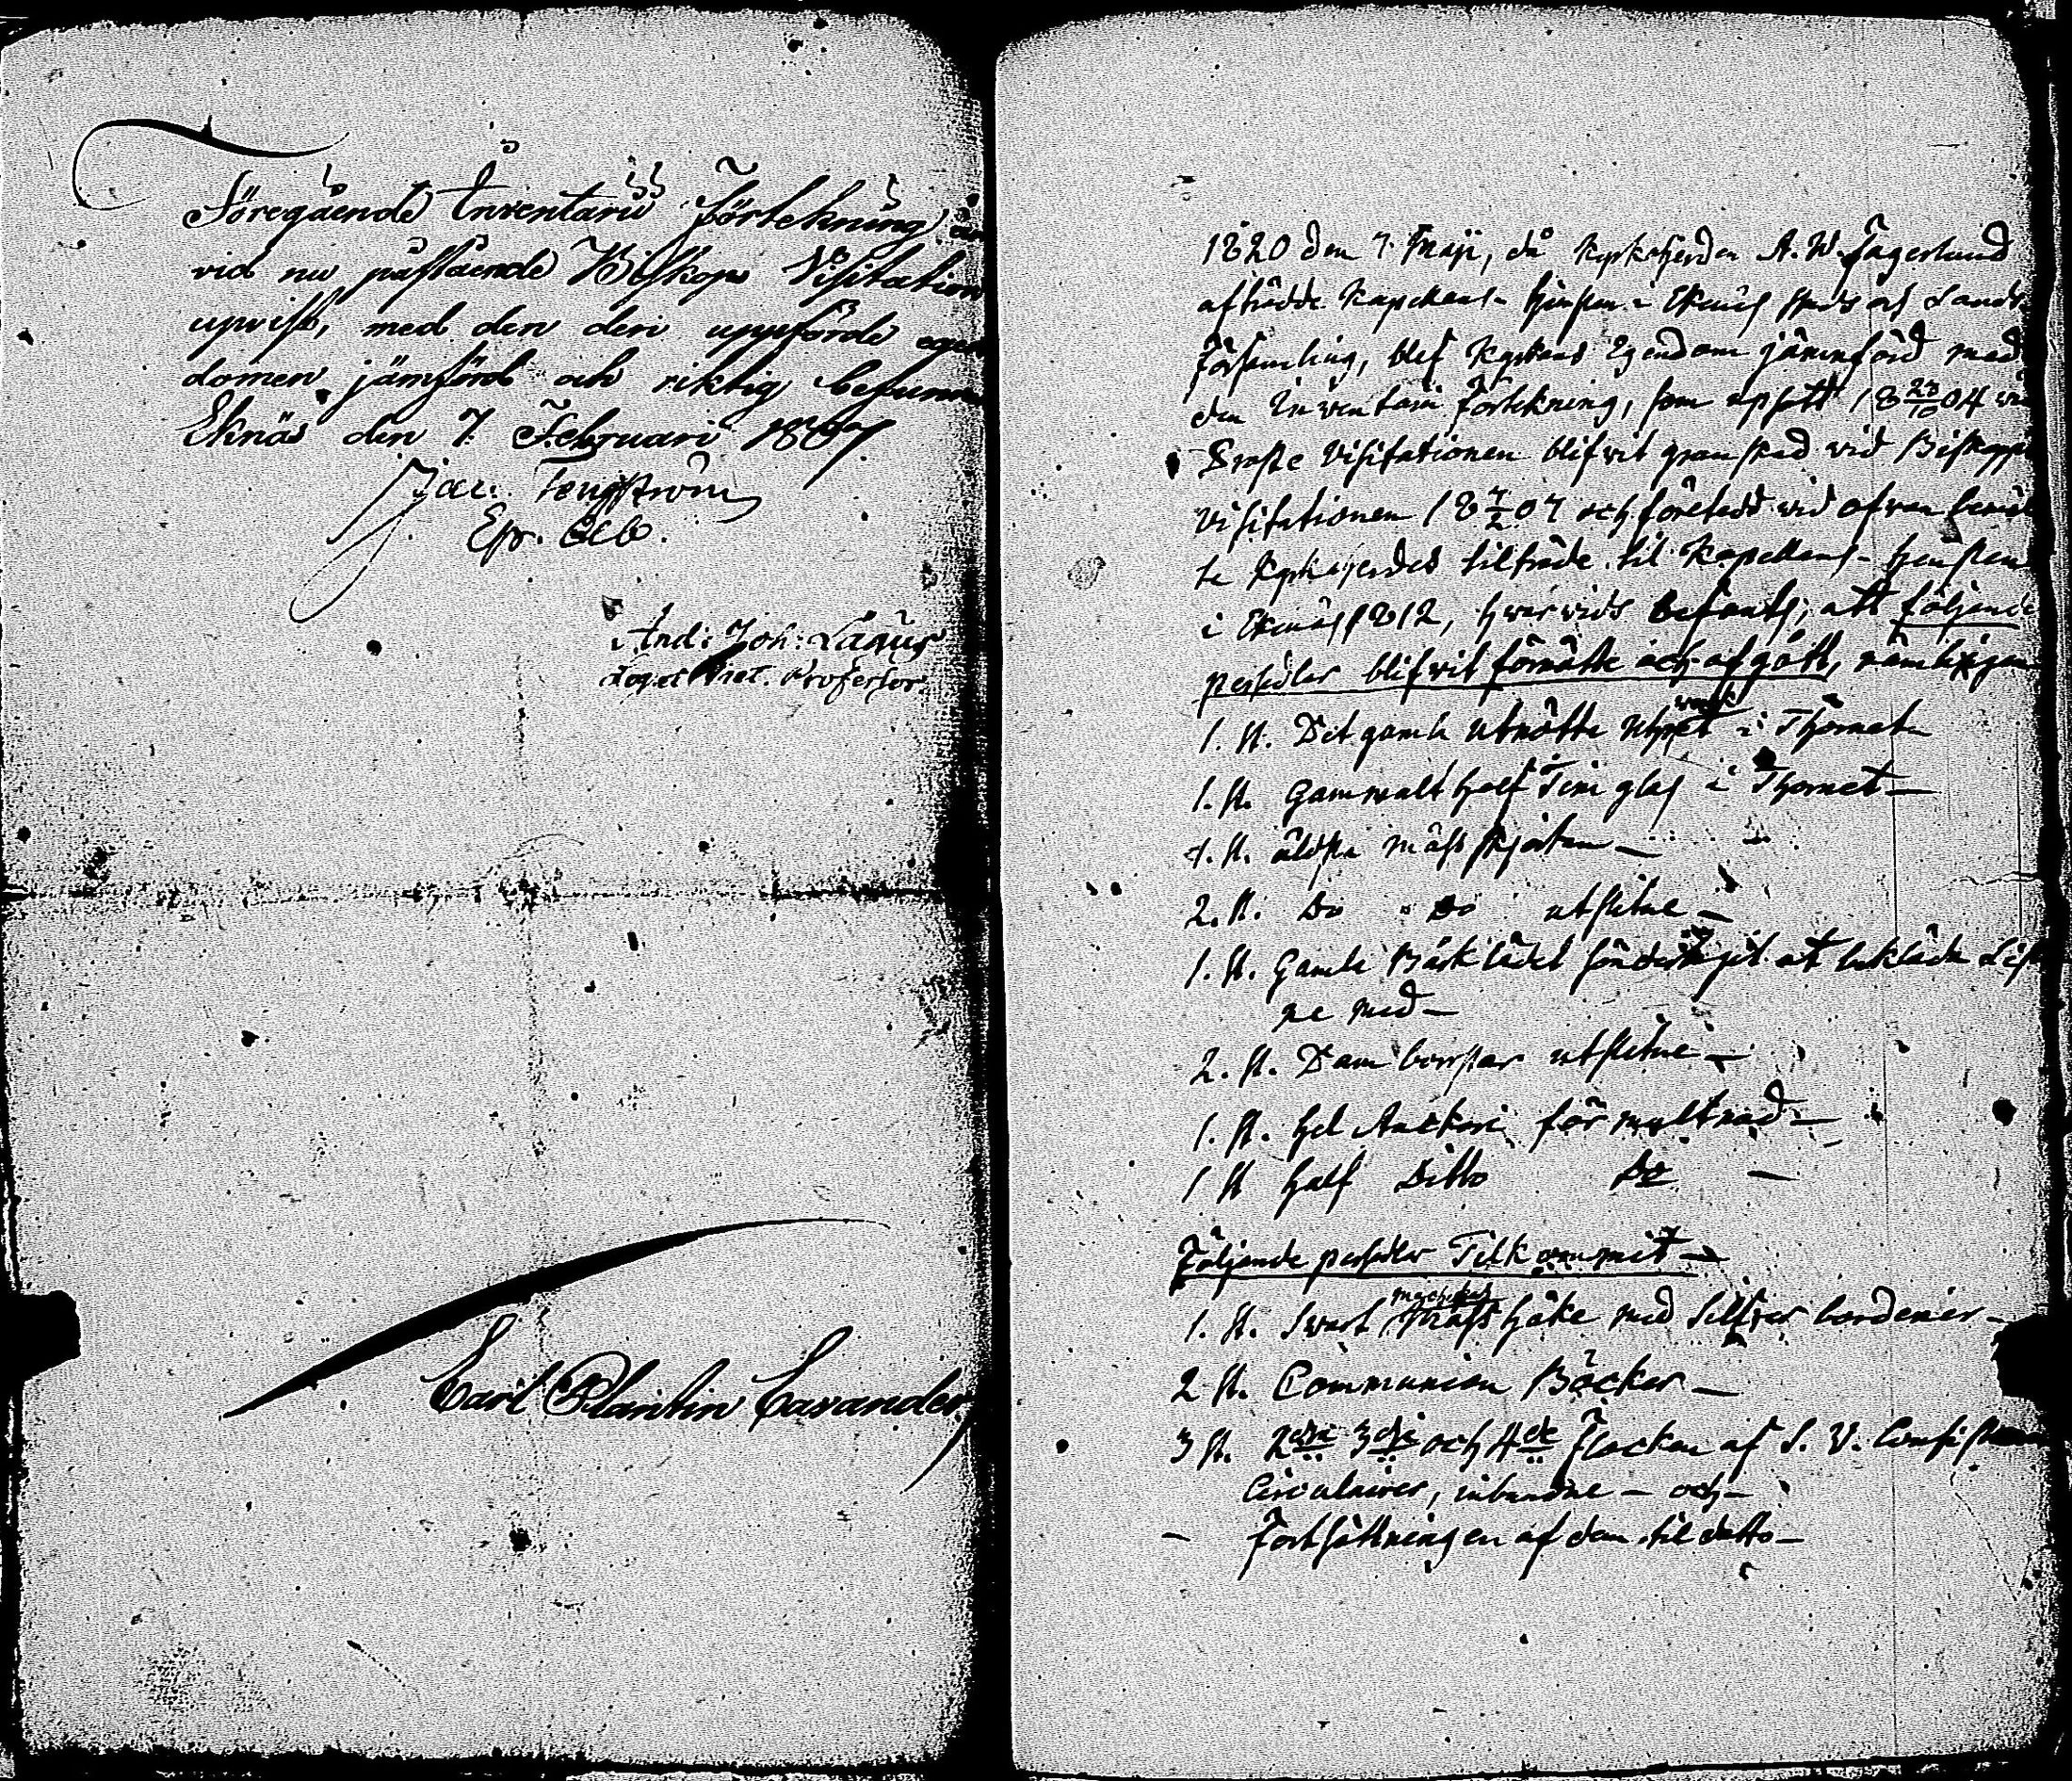 Föregående Inventarii Förtekning är
vid nu påstående Biskops Visitation
upvist, med den deri uppförde egen
domen jämförd och riktig befunnen
Eknäs den 7 Februari 1807.
Jac. Tengström
Ep. Ab.
And: Joh: Lagus
Log. et Met. Professor.
Carl Plantin Cavander
1820 den 7 Maji, då Kyrkoherden A. W. Fagerlund
afträdde Kapellans-tjensten i Ekenäs stads och Lands
Församling, blef Kyrkans Egendom jämnförd med
den Inventarii Förtekning, som upsatt 18 23/10 04 vid
Prosté Visitationen blifvit granskad vid Biskops
Visitationen 18 7/2 07 och företedd vid ofvan benäm
te Kyrkoherdes tilträde til Kapellans-tjensten
i Ekenäs 1812, hvarvids befants, att följande
persedlar blifvit förnötte och afgått, nämligen
1. st. Det gamla utnötte Uhrvärket i Thornet
1. st. Gammalt half Tim glas i Thornet —
1. st. äldsta mäss skjortan —
2. st. Do Do utslitne —
1. st. Gamla Bårklädet at bekläda
ne med —
2. st. Dam borstar utslitne —
1. st. hel Anckare förmultnad —
1 st half Ditto Do —
Följande persedlar Tilkommit —
1. st. Svart Mässhake med Silfver bordenier —
2 st. Communion Böcker —
3 st. 2dra 3dje och 4de Flocken af S. V. Consist
Circulairer, inbundne — och —
— Fortsättningen af dem til dato —